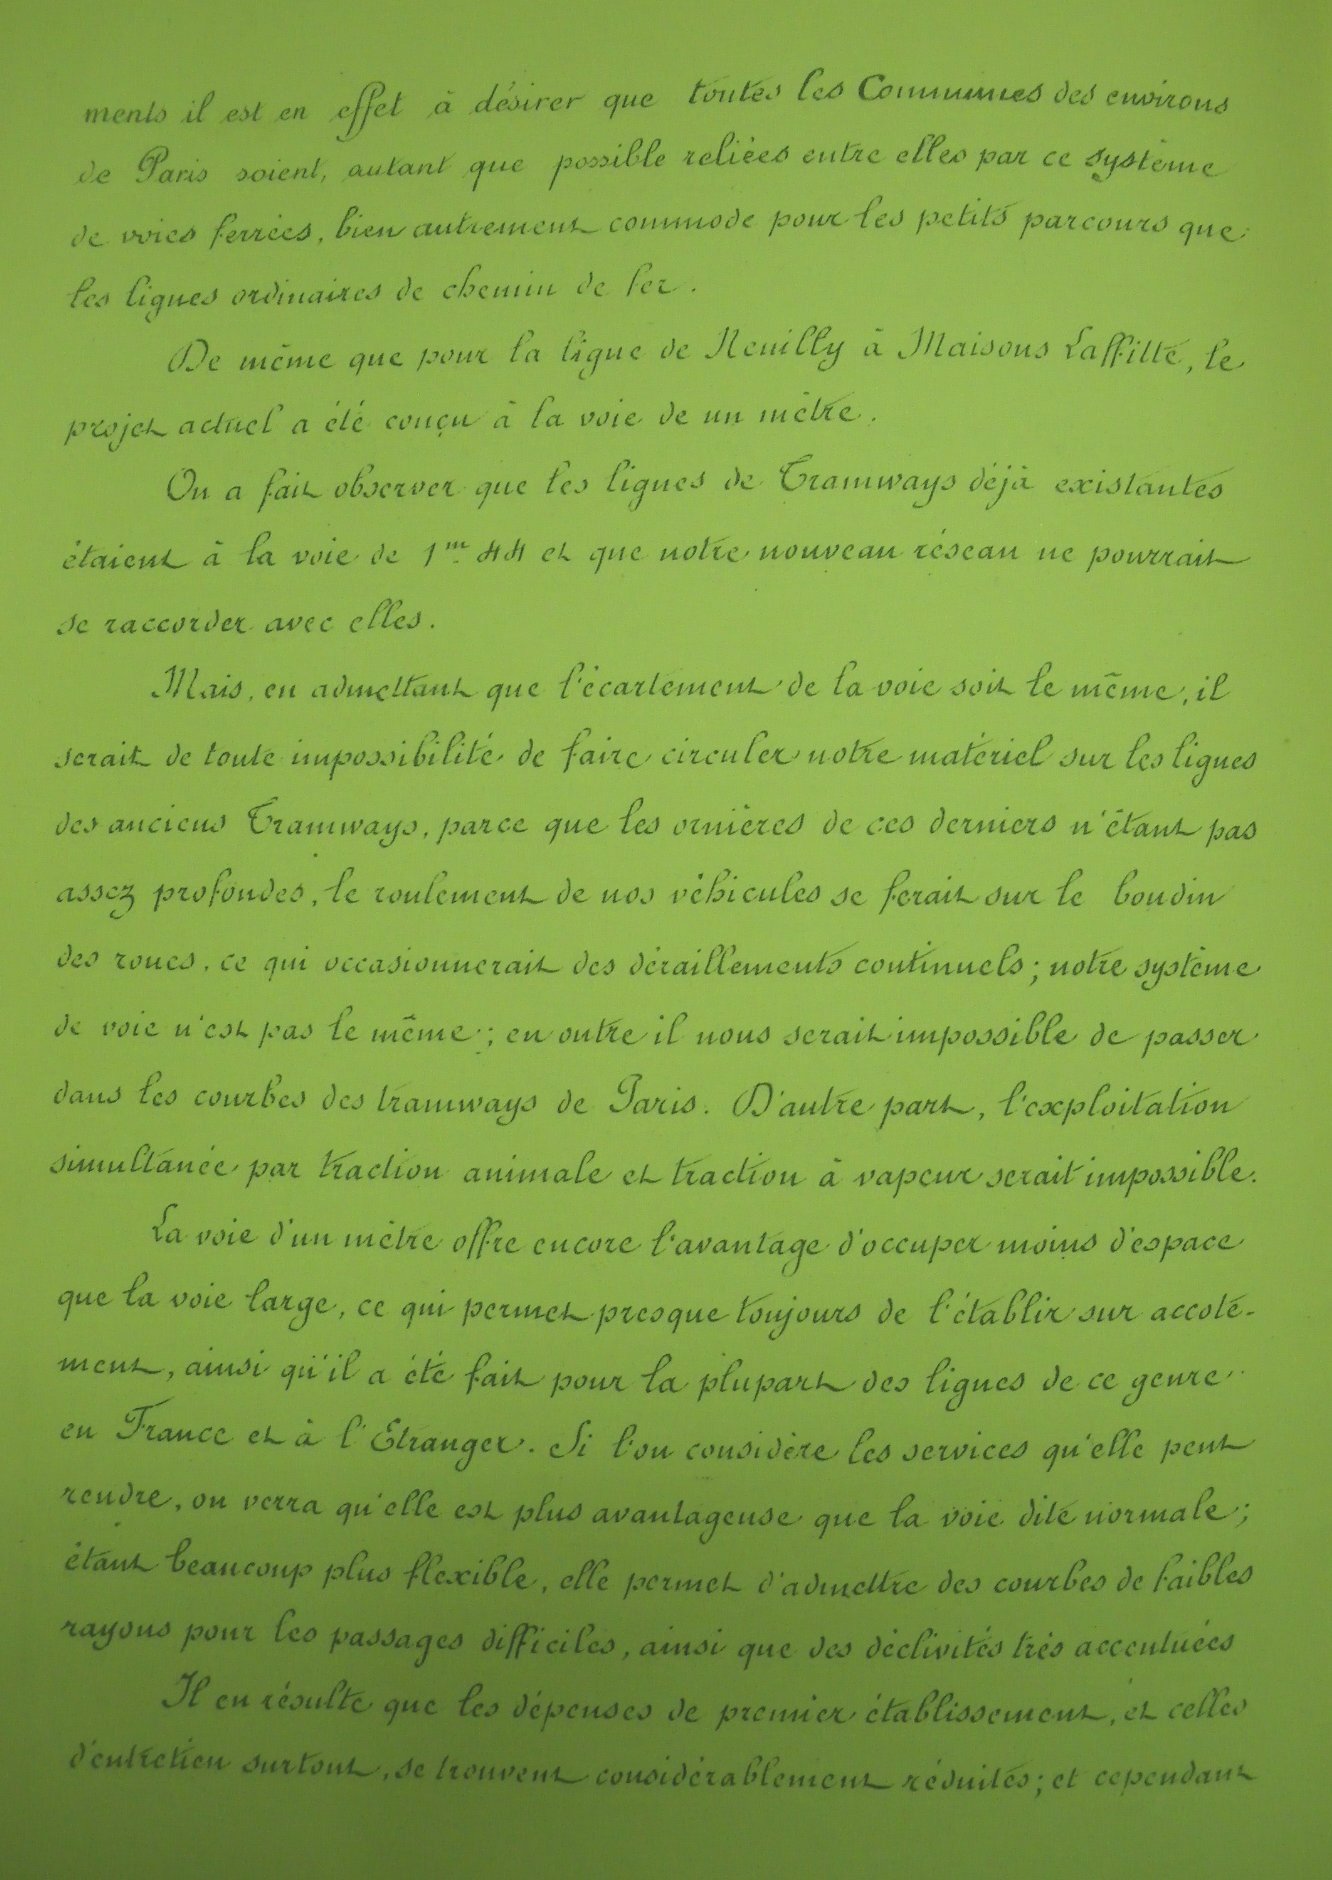 ments il est en effet à désirer que toutes les Communes des environs
de Paris soient, autant que possible reliées entre elles par ce système
de voies ferrées, bien autrement commode pour les petits parcours que
les lignes ordinaires de chemin de fer.
De même que pour la ligne de Neuilly à Maisons Laffitte, le
projet actuel a été conçu à la voie de un mètre.
On a fait observer que les lignes de Tramways déjà existantes
étaient à la voie de 1m.44 et que notre nouveau réseau ne pourrait
se raccorder avec elles.
Mais, en admettant que l'écartement de la voie soit le même, il
serait de toute impossibilité de faire circuler notre matériel sur les lignes
des anciens Tramways, parce que les ornières de ces derniers n'étant pas
assez profondes, le roulement de nos véhicules se ferait sur le boudin
des roues, ce qui occasionnerait des déraillements continuels; notre système
de voie n'est pas le même; en outre il nous serait impossible de passer
dans les courbes des tramways de Paris. D'autre part, l'exploitation
simultanée par traction animale et traction à vapeur serait impossible.
La voie d'un mètre offre encore l'avantage d'occuper moins d'espace
que la voie large, ce qui permet presque toujours de l'établir sur accote-
ment, ainsi qu'il a été fait pour la plupart des lignes de ce genre
en France et à l'Etranger. Si l'on considère les services qu'elle peut
rendre, on verra qu'elle est plus avantageuse que la voie dite normale;
étant beaucoup plus flexible, elle permet d'admettre des courbes de faibles
rayons pour les passages difficiles, ainsi que des déclivités très accentuées
Il en résulte que les dépenses de premier établissement, et celles
d'entretien surtout, se trouvent considérablement réduites; et cependant